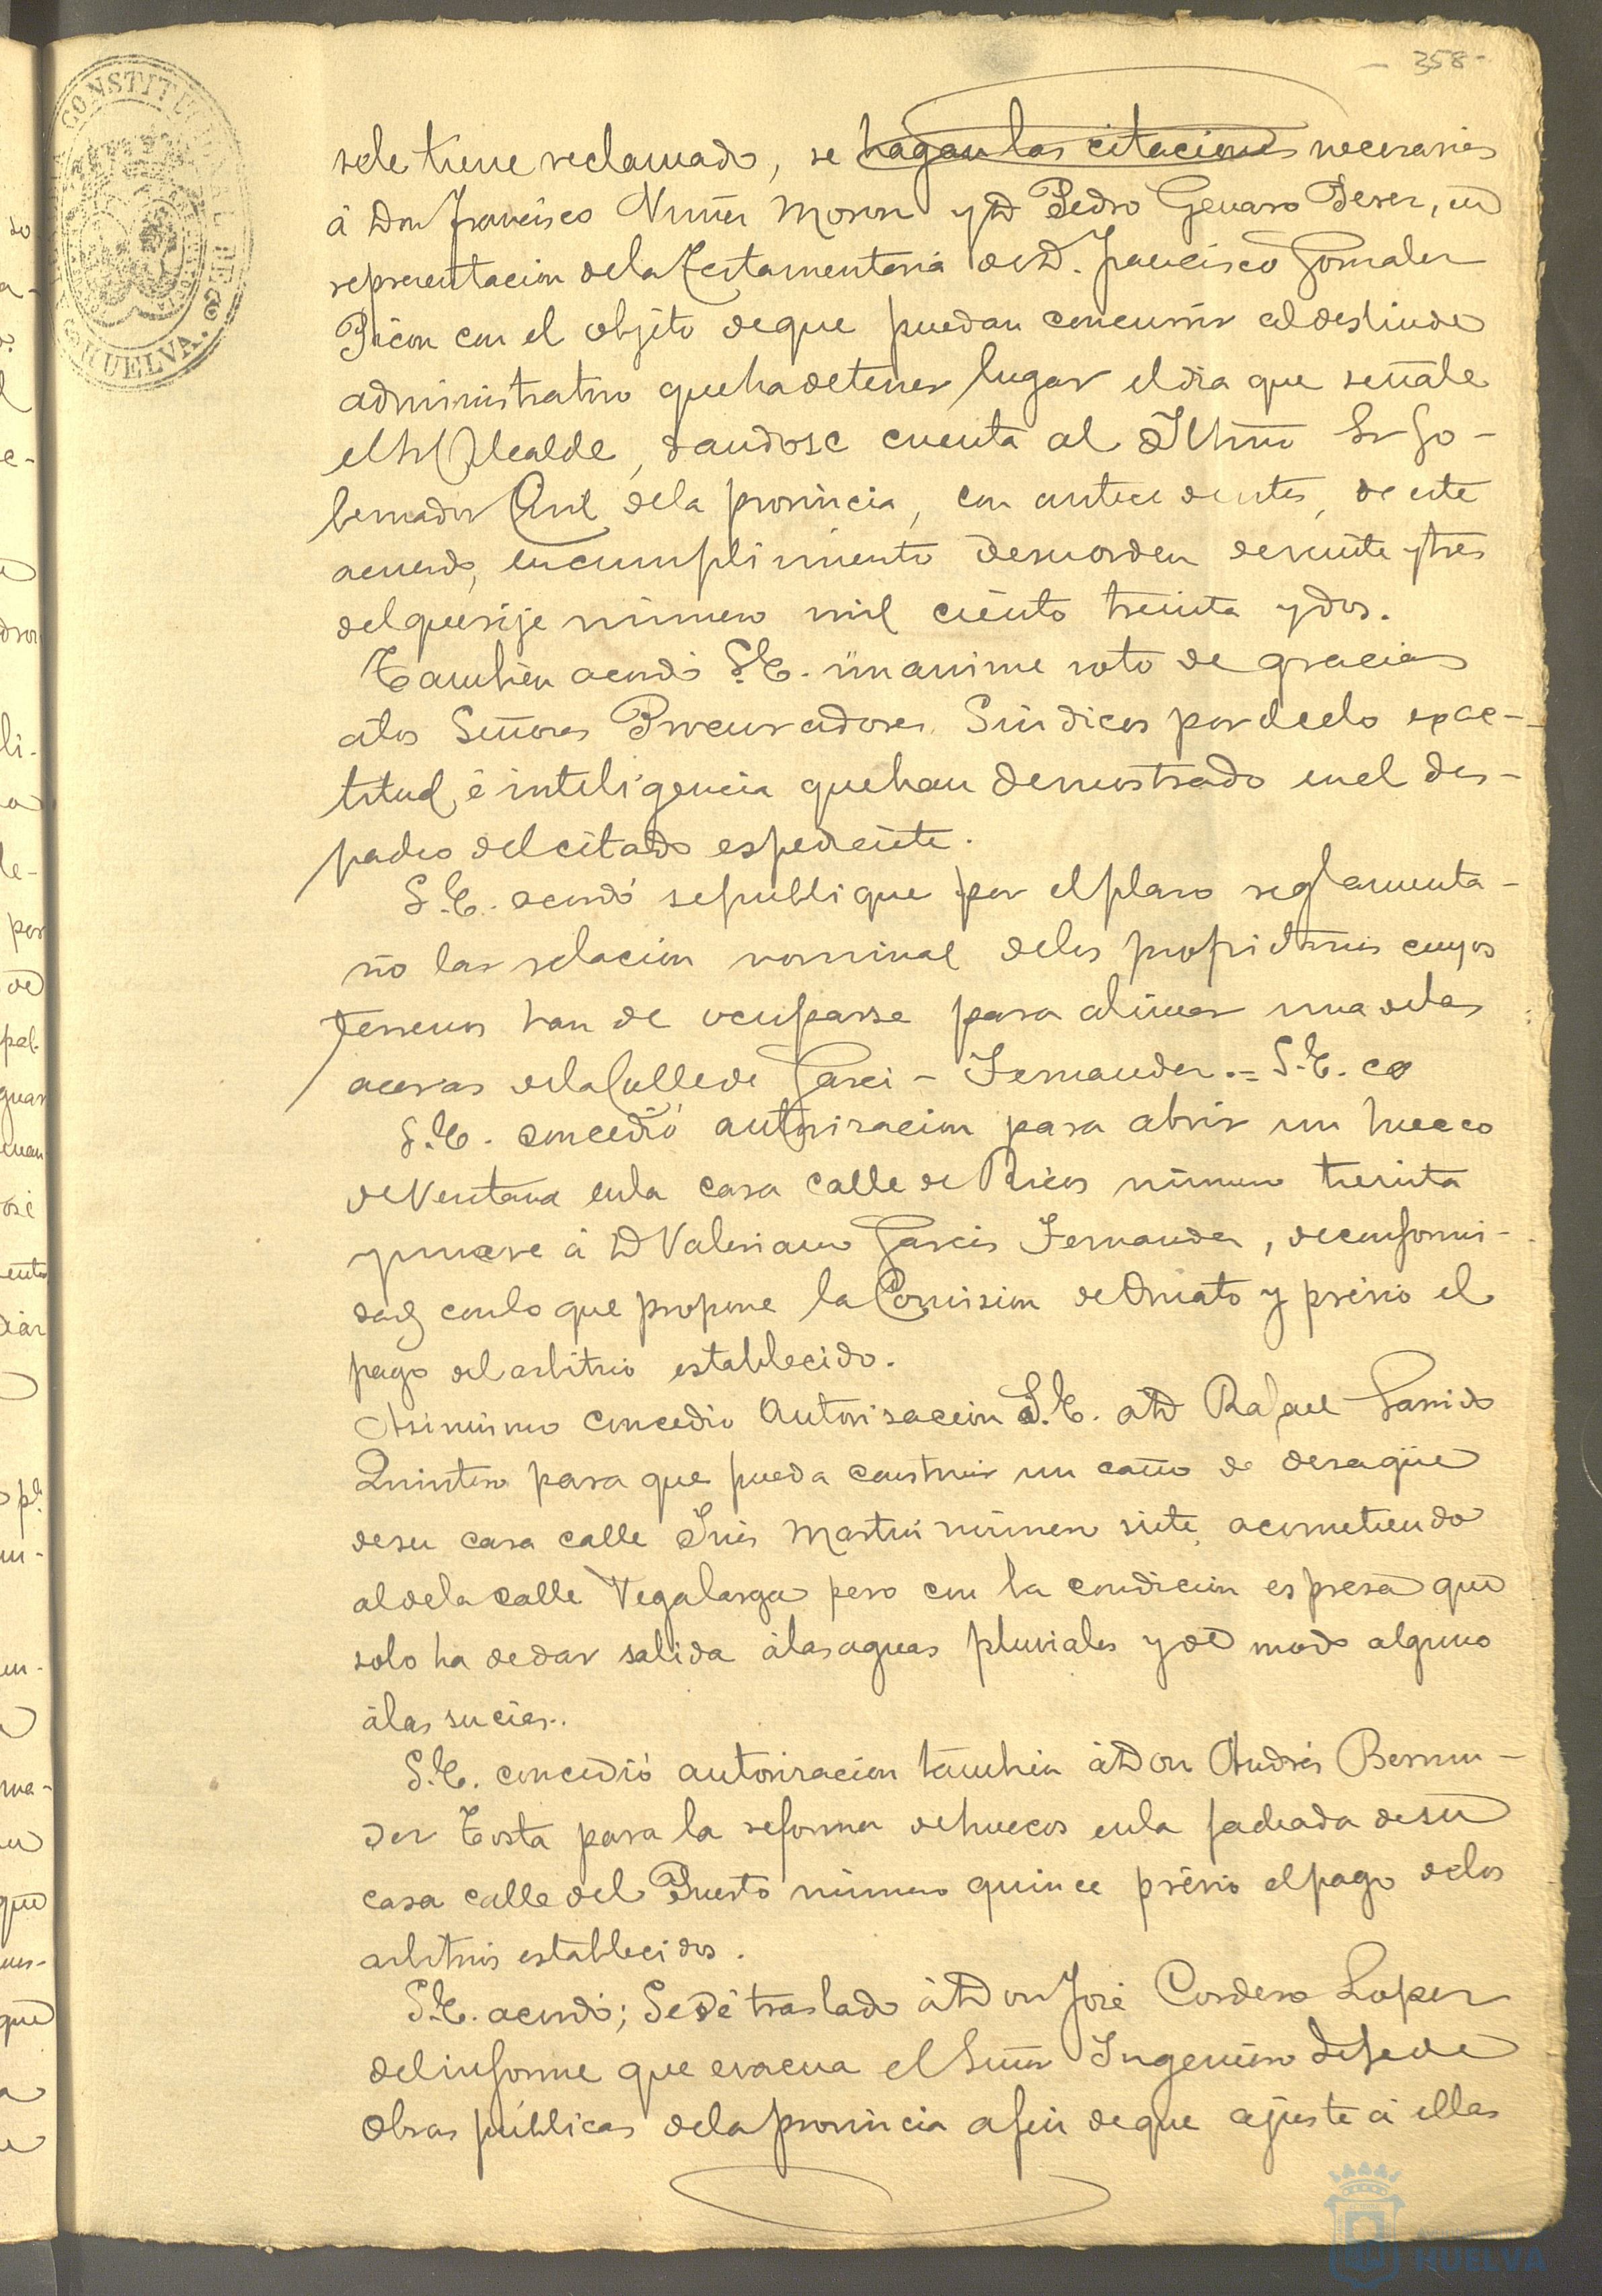 - 358 -
CONSTITUCIONAL DE
HUELVA.
sele tiene reclamado, se hagan las citaciones necesarias
á Don Francisco Nuñez Moron y D Pedro Genaro Perez, en
representacion dela Testamentaria de D. Francisco Gonzalez
Picon con el objéto deque puedan concurrir al deslinde
administrativo queha detener lugar el dia que señale
el Sr Alcalde, dandose cuenta al Iltmo Sr Go-
bernador Civil dela provincia, con antecedentes, de este
acuerdo, en cumplimiento desu orden de veinte y tres
del que rije número mil ciento treinta y dos.
Tambien acordó S.E. unanime voto de gracias
álos Señores Procuradores Sindicos por el celo exac-
titud é inteligencia que han demostrado en el des-
pacho del citado espediente.
S.E. acordó se publique por el plazo reglamenta-
rio las relacion nominal delos propietarios cuyos
terrenos han de ocuparse para alinear una delas
aceras dela Calle de Garci-Fernandez.= S.E. co
S.E. concedió autorizacion para abrir un hueco
de Ventana enla casa calle de Ricos número treinta
y nueve á D Valeriano Garcia Fernandez, de conformi-
dad con lo que propone la Comision de Ornato y prévio el
pago del arbitrio establecido.
Asimismo concedio autorisacion S.E. á D Rafael Garrido
Quintero para que pueda construir un caño de desagüe
desu casa calle Inés Martin número siete, acometiendo
al dela calle Vegalarga pero con la condicion espresa que
solo ha de dar salida álas aguas pluviales y de modo alguno
álas sucias.
S.E. concedió autorizacion tambien á Don Andrés Bermu-
dez Tosta para la reforma de huecos enla fachada desu
casa calle del Puerto número quince prévio el pago delos
arbitrios establecidos.
S.E. acordó; Se dé traslado á Don José Cordero Lopez
del informe que evacua el Señor Ingeniero Jefe de
Obras públicas dela provincia afin deque ajuste á ellas
HUELVA